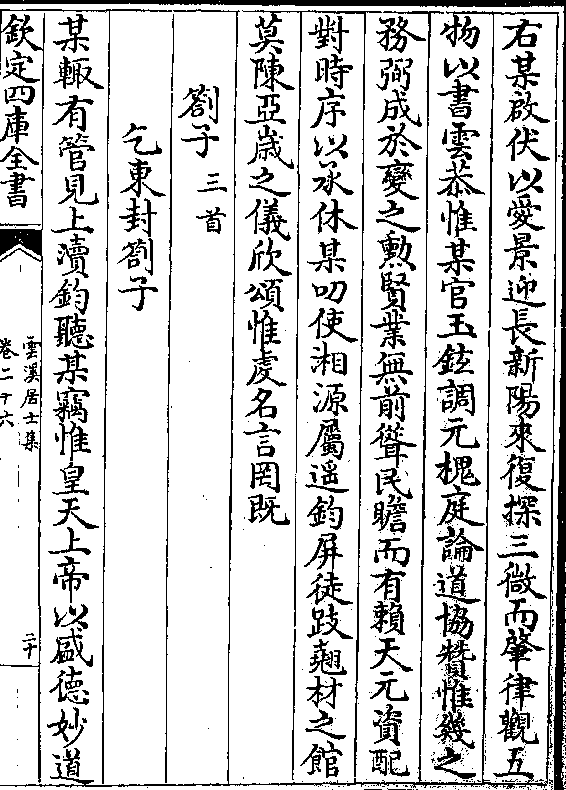 右某啟伏以愛景迎長新陽來復探三微而肇律觀五
物以書雲恭惟某官玉鉉調元槐庭論道協贊惟幾之
務弼成於變之勲賢業無前聳民瞻而有賴天元資配
對時序以承休某叨使湘源屬遥鈞屏徒跂翹材之館
莫陳亞歲之儀欣頌惟䖍名言罔既
劄子三首
乞東封劄子
某輙有管見上瀆鈞聽某竊惟皇天上帝以盛德妙道
欽定四庫全書
雲溪居士集
卷二十六
二十